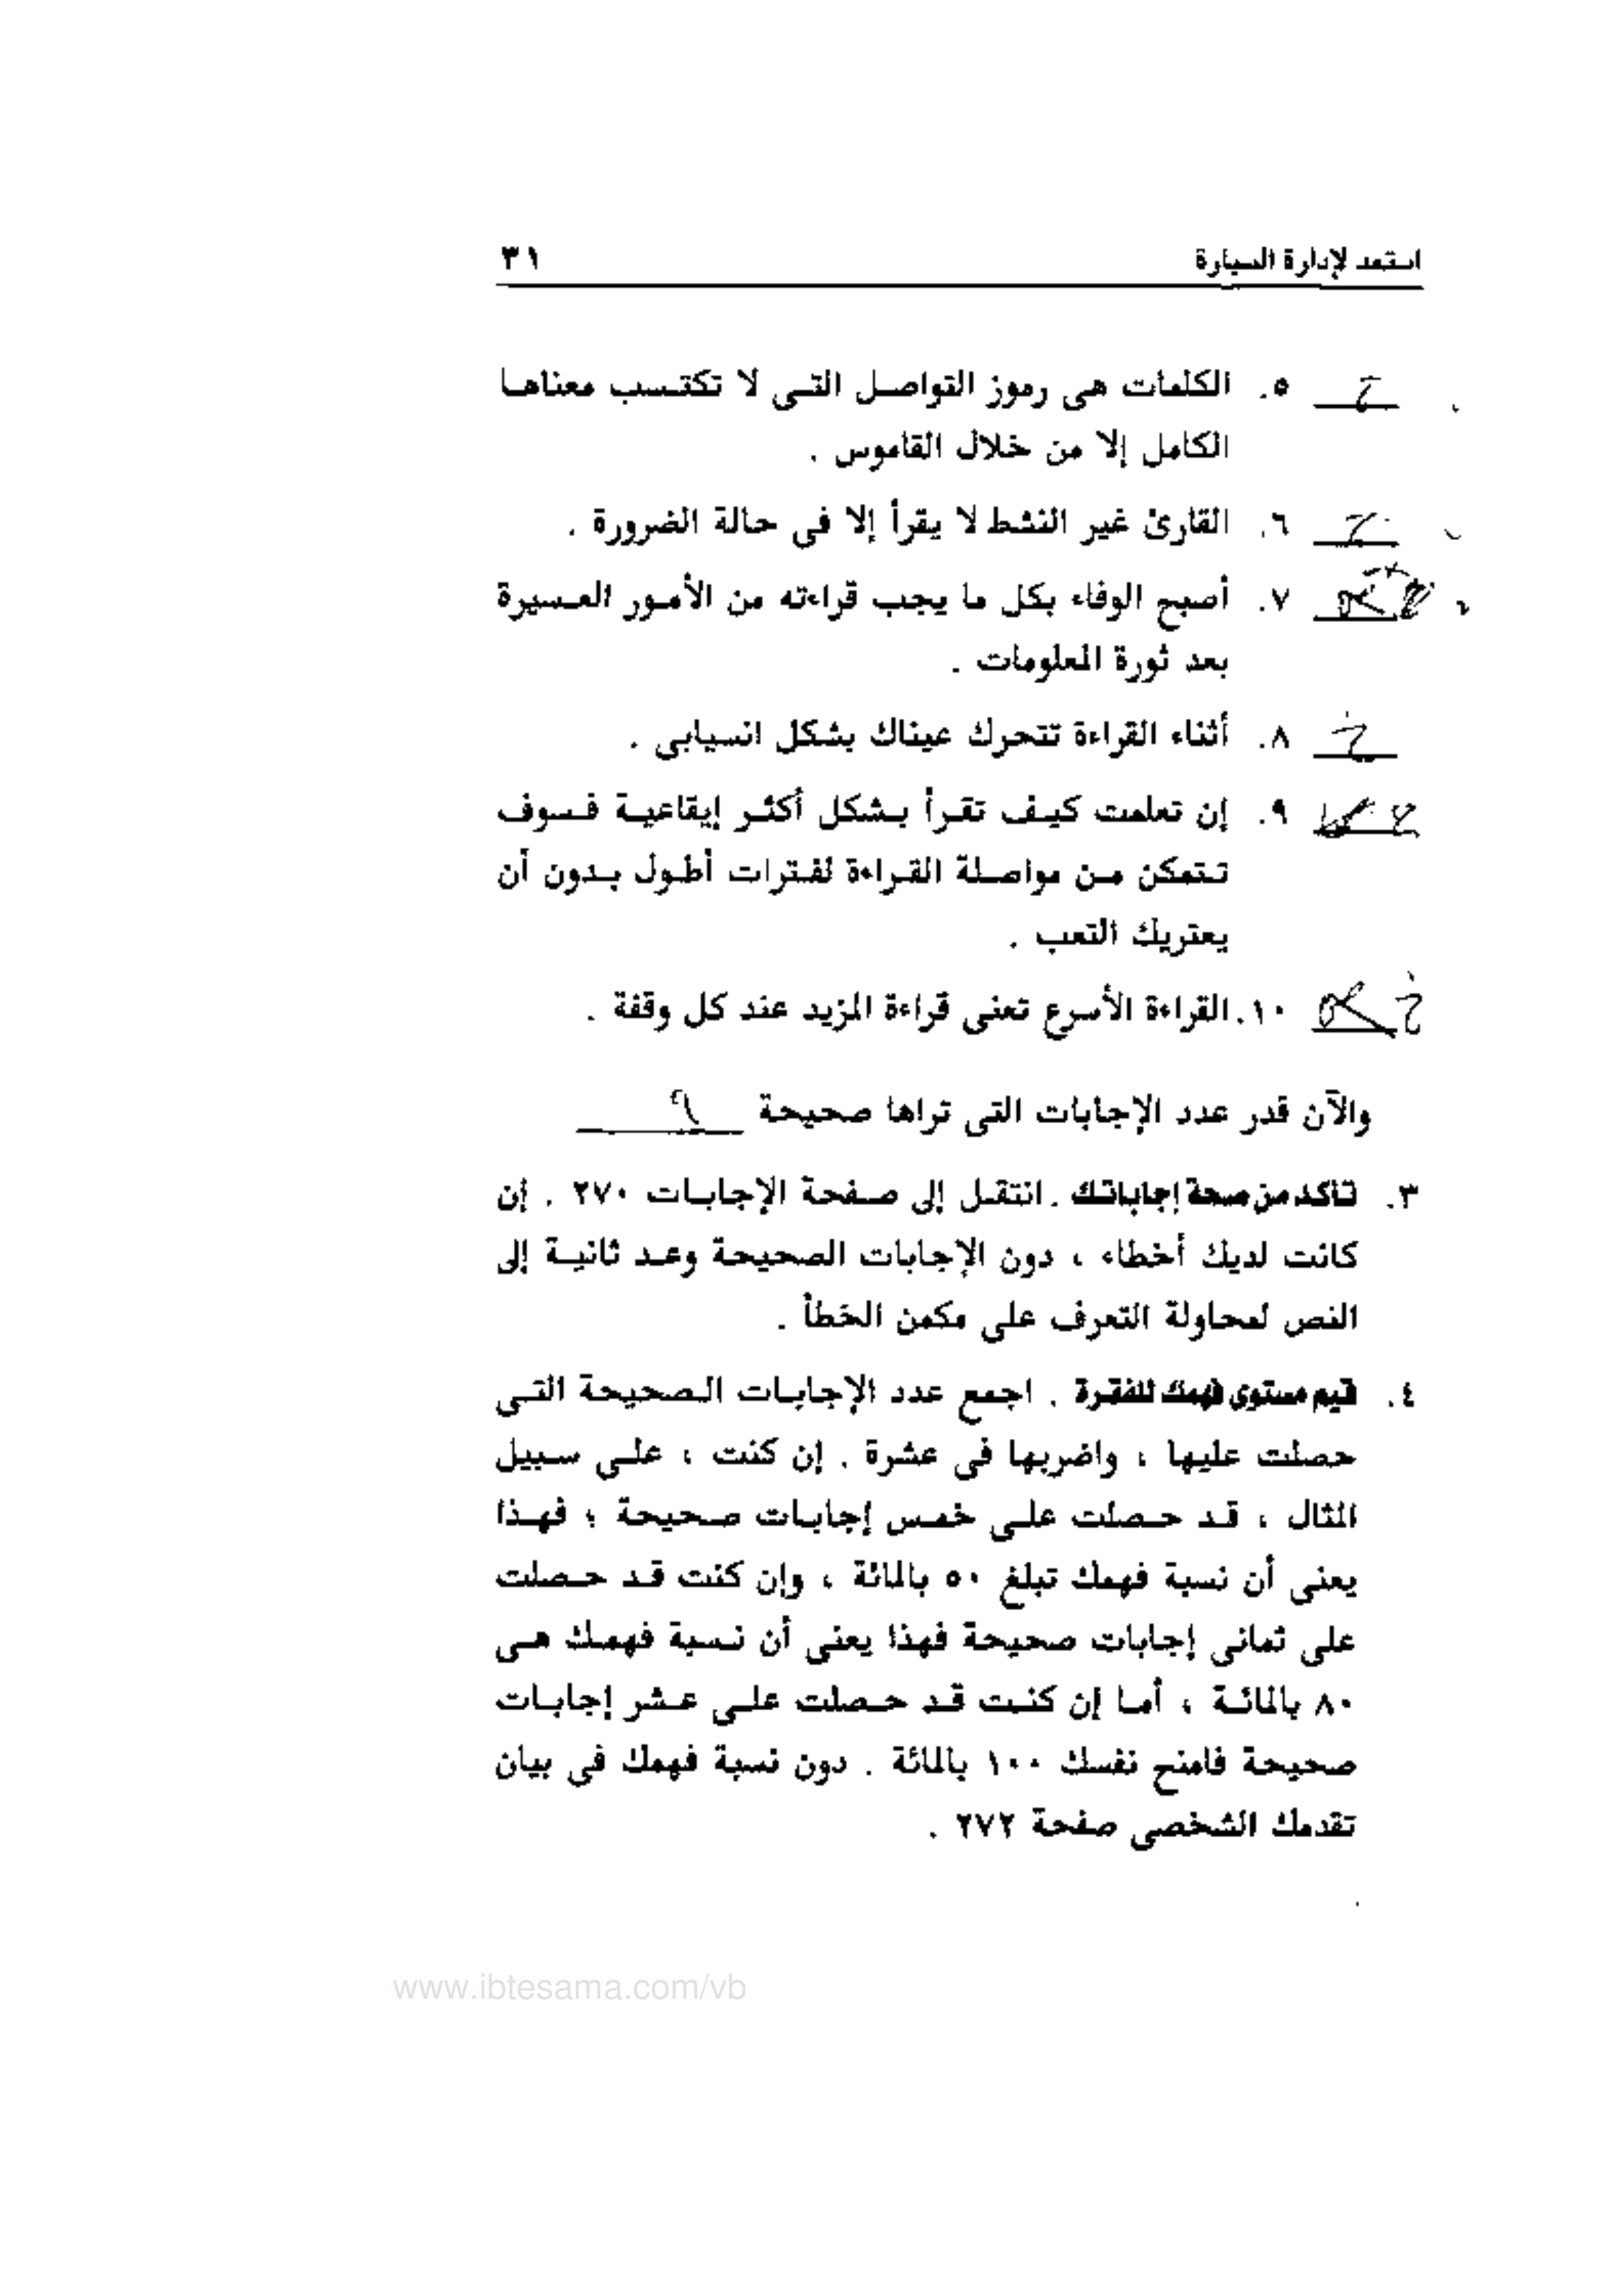 استعد لإدارة السيارة ٣١
ح ٥. الكلمات هى رموز التواصل التى لا تكتسب معناها
الكامل إلا من خلال القاموس .
ح ٦. القارئ غير النشط لا يقرأ إلا فى حالة الضرورة .
٧. أصبح الوفاء بكل ما يجب قراءته من الأمور العسيرة
بعد ثورة المعلومات .
خ ٨. أثناء القراءة تتحرك عيناك بشكل انسيابى .
٩. إن تعلمت كيف تقرأ بشكل أكثر إيقاعية فسوف
تتمكن من مواصلة القراءة لفترات أطول بدون أن
يعتريك التعب .
خ ١٠. القراءة الأسرع تعنى قراءة المزيد عند كل وقفة .
والآن قدر عدد الإجابات التى تراها صحيحة
٣. تأكد من صحة إجاباتك . انتقل إلى صفحة الإجابات ٢٧٠ . إن
كانت لديك أخطاء ، دون الإجابات الصحيحة وعد ثانية إلى
النص لمحاولة التعرف على مكمن الخطأ .
٤. قيم مستوى فهمك للفقرة . اجمع عدد الإجابات الصحيحة التى
حصلت عليها ، واضربها فى عشرة . إن كنت ، على سبيل
المثال ، قد حصلت على خمس إجابات صحيحة ؛ فهذا
يعنى أن نسبة فهمك تبلغ ٥٠ بالمائة ، وإن كنت قد حصلت
على ثمانى إجابات صحيحة فهذا يعنى أن نسبة فهمك هى
٨٠ بالمائة ، أما إن كنت قد حصلت على عشر إجابات
صحيحة فامنح نفسك ١٠٠ بالمائة . دون نسبة فهمك فى بيان
تقدمك الشخصى صفحة ٢٧٢ .
www.ibtesama.com/vb